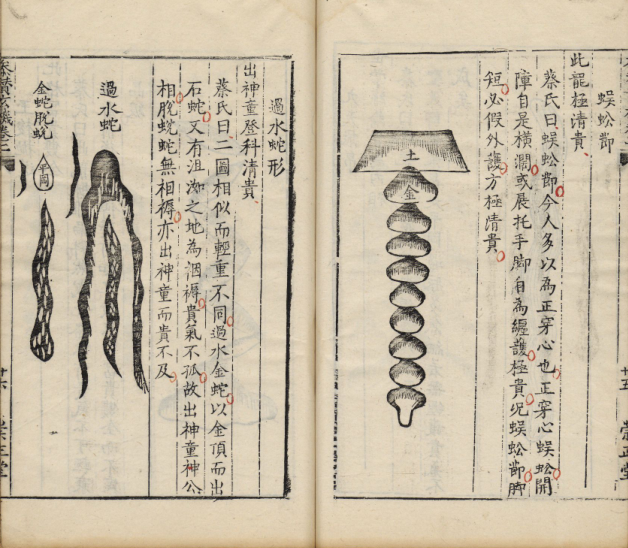 蜈蚣節
此龍極清貴
蔡氏曰蜈蚣節今人多以為正穿心也正穿心蜈蚣開
障自是橫濶或展托手脚自為纏護極貴况蜈蚣節脚
短必假外護方極清貴
土
金
廿五
崇正堂
過水蛇形
出神童登科清貴
蔡氏曰二圖相似而輕重不同過水金蛇以金頂而出
石蛇又有沮洳之地為裀褥貴氣不孤故出神童神公
相脫蛻蛇無相褥亦出神童而貴不及
過水蛇
金蛇脫蛻
廿六
崇正堂